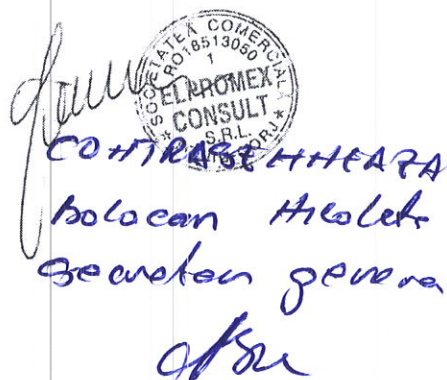 SOCIETATEA COMERCIALA
RO18513050
1
ELPROMEX
CONSULT
S.R.L.
CONTRASEMNEAZA
Bolocan Nicolet
Secretar genera